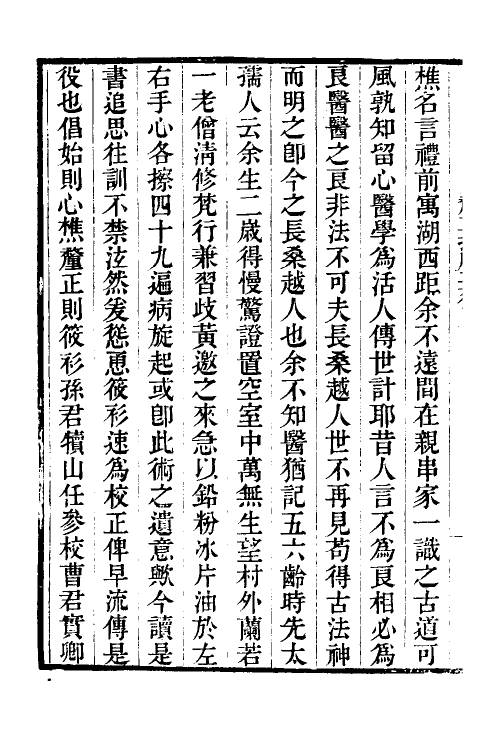 樵名言禮前寓湖西距余不遠間在親串家一識之古道可
風孰知留心醫學爲活人傳世計耶昔人言不爲良相必爲
良醫醫之良非法不可夫長桑越人世不再見苟得古法神
而明之卽今之長桑越人也余不知醫猶記五六齡時先太
孺人云余生二歲得慢驚證置空室中萬無生望村外蘭若
一老僧淸修梵行兼習歧黃邀之來急以鉛粉冰片油於左
右手心各擦四十九遍病旋起或卽此術之遺意歟今讀是
書追思往訓不禁泫然爰慫恿筱衫速爲校正俾早流傳是
役也倡始則心樵釐正則筱衫孫君犢山任參校曹君實卿